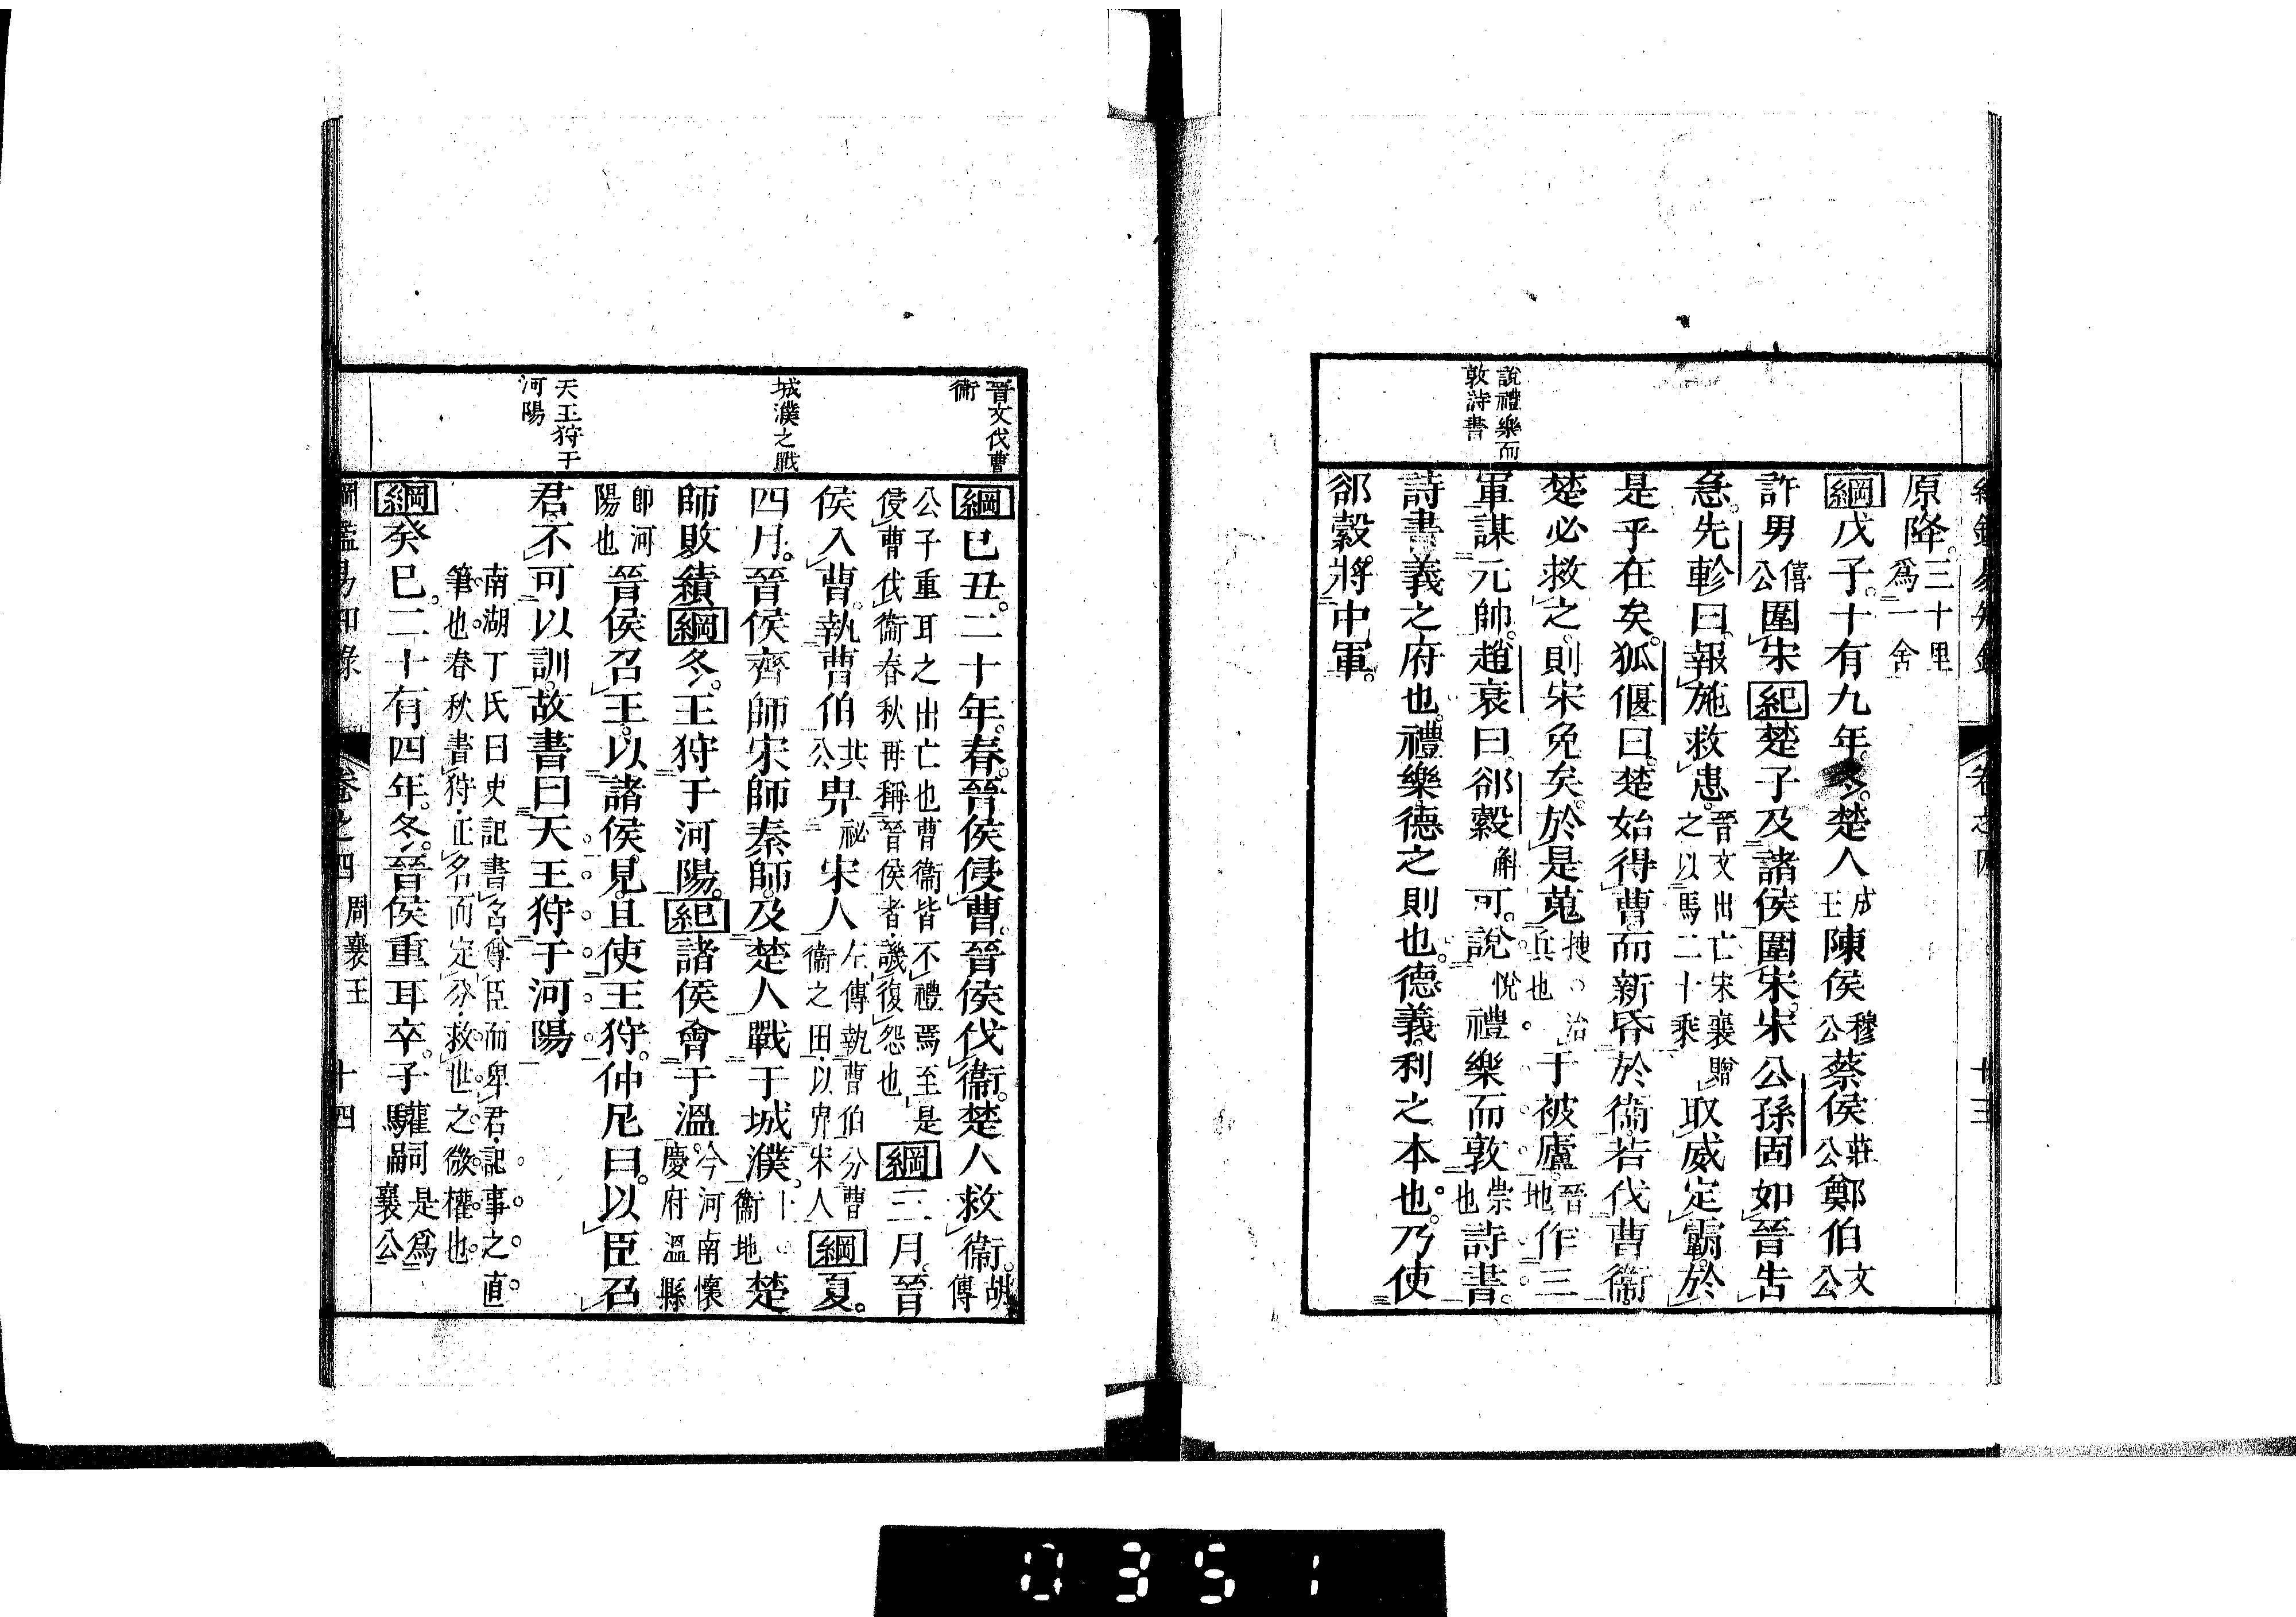 說禮樂而
敦詩書
原降。三十里
爲一舍
綱戊子。十有九年。冬。楚人成王陳侯穆公蔡侯莊公鄭伯文公
許男僖公圍宋紀楚子及諸侯圍宋。宋公孫固如晉告
急。先軫曰。報施救患。晉文出亡宋襄贈之以馬二十乘取威定霸。於
是乎在矣。狐偃曰。楚始得曹。而新昏於衞。若伐曹衞。
楚必救之。則宋免矣。於是蒐搜。治兵也于被廬。晉地作三
軍。謀元帥。趙衰曰。郤縠斛可。說悅禮樂而敦崇也詩書。
詩書義之府也。禮樂德之則也。德義利之本也。乃使
郤縠將中軍。
卷之四
十三
晉文伐曹
衞
城濮之戰
天王狩于
河陽
綱己丑。二十年。春。晉侯侵曹。晉侯伐衞。楚人救衞。胡傳
公子重耳之出亡也曹衞皆不禮焉至是
侵曹伐衞春秋再稱晉侯者譏復怨也綱三月。晉
侯入曹。執曹伯共公畀祕宋人左傳執曹伯分曹衞之田以畀宋人綱夏。
四月。晉侯齊師宋師秦師。及楚人戰于城濮。衞地楚
師敗績綱冬。王狩于河陽。紀諸侯會于溫。今河南懷慶府溫縣
卽河陽也晉侯召王。以諸侯見。且使王狩。仲尼曰。以臣召
君。不可以訓。故書曰。天王狩于河陽
南湖丁氏曰史記書名尊臣而卑君。記事之直
筆也。春秋書狩。正名而定分。救世之微權也。
綱癸巳。二十有四年。冬。晉侯重耳卒。子驩嗣是爲襄公
綱鑑易知錄
卷之四
周襄王
十四
0351